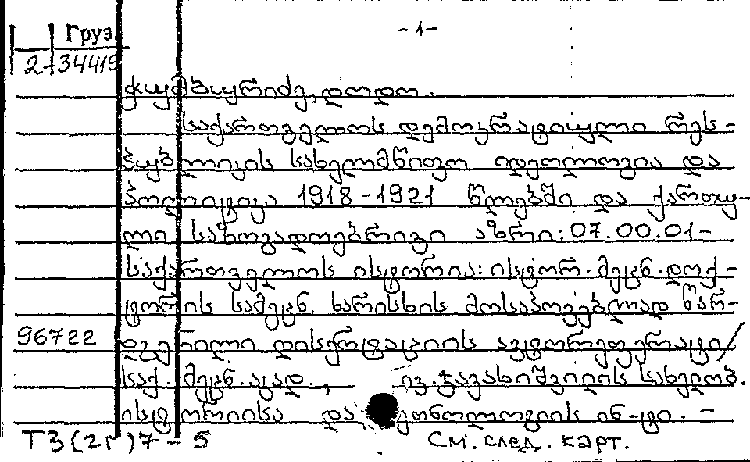 -1-
Груз.
2-34415
ჭუმბურიძე, დოდო.
საქართველოს დემოკრატიული რეს-
პუბლიკის სახელმწიფო იდეოლოგია და
პოლიტიკა 1918-1921 წლებში და ქართუ-
ლი საზოგადოებრივი აზრი: 07.00.01-
საქართველოს ისტორია: ისტორ. მეცნ. დოქ-
ტორის სამეცნ. ხარისხის მოსაპოვებლად წარ-
96722 დგენილი დისერტაციის ავტორეფერატი/
საქ. მეცნ. აკად., ივ. ჯავახიშვილის სახელობ.
ისტორიისა და ეთნოლოგიის ინ-ტი. -
ТЗ(2г)7-5 См. след. карт.